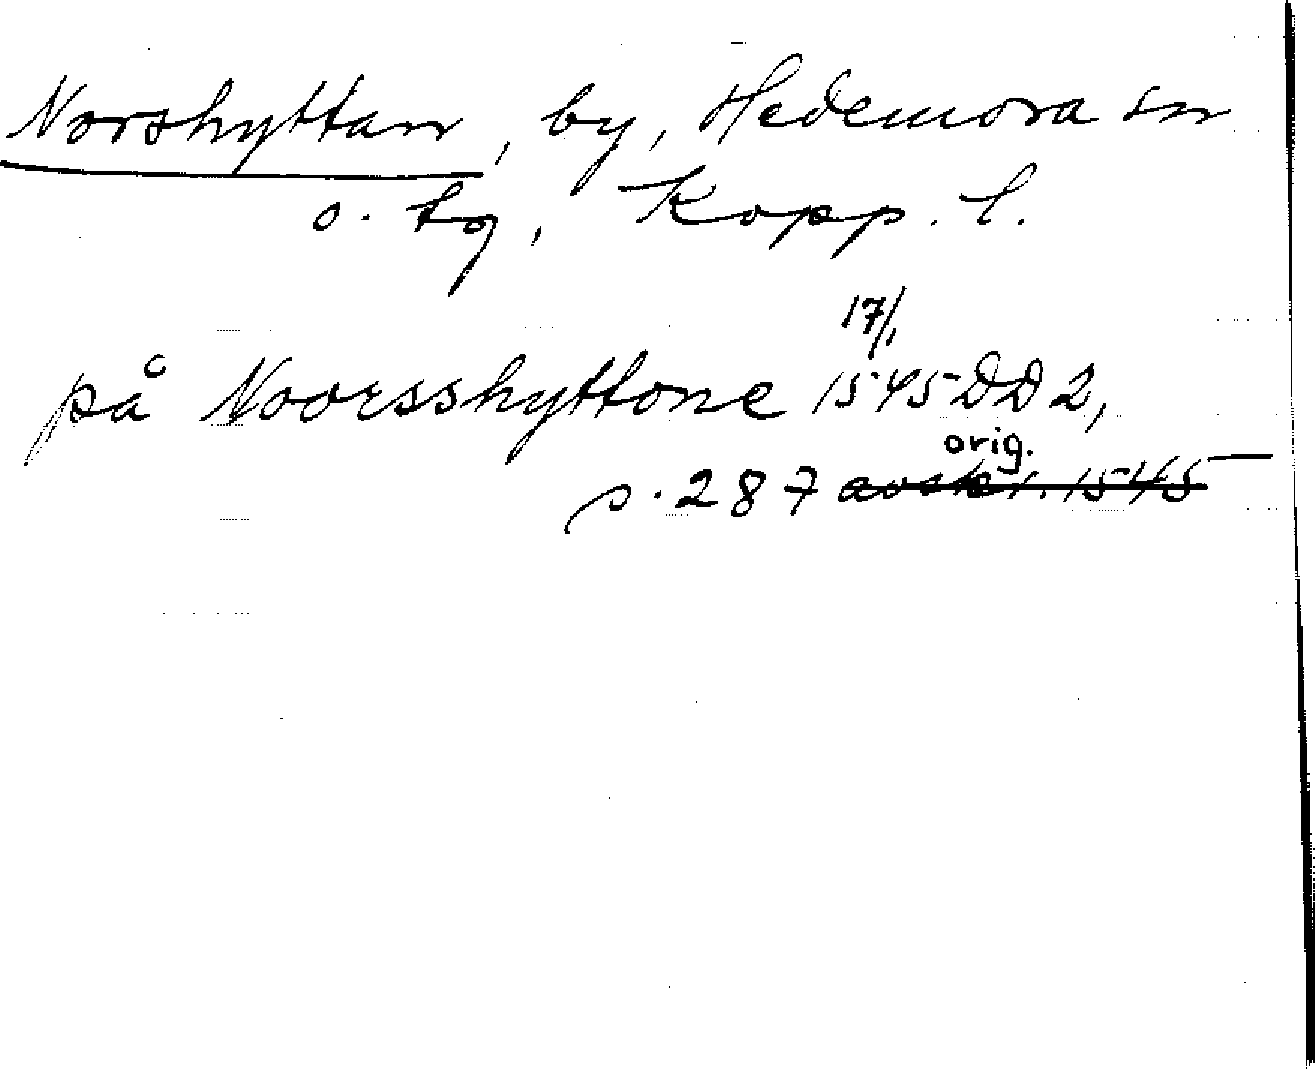 Norshyttan, by, Hedemora sn
o. tg, Kopp. l.
17/1
på Noorsshyttone 1545 DD 2,
orig.
s. 287 avskr. 1545